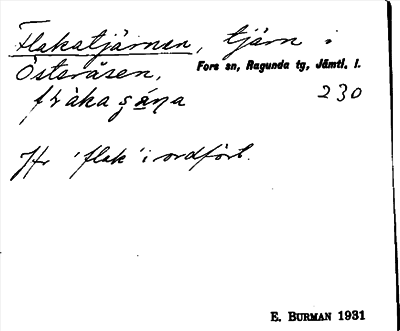 Flakatjärnen, tjärn i
Österåsen, Fors sn, Ragunda tg, Jämtl. l.
230
Jfr 'flak' i ordfört.
E. BURMAN 1931